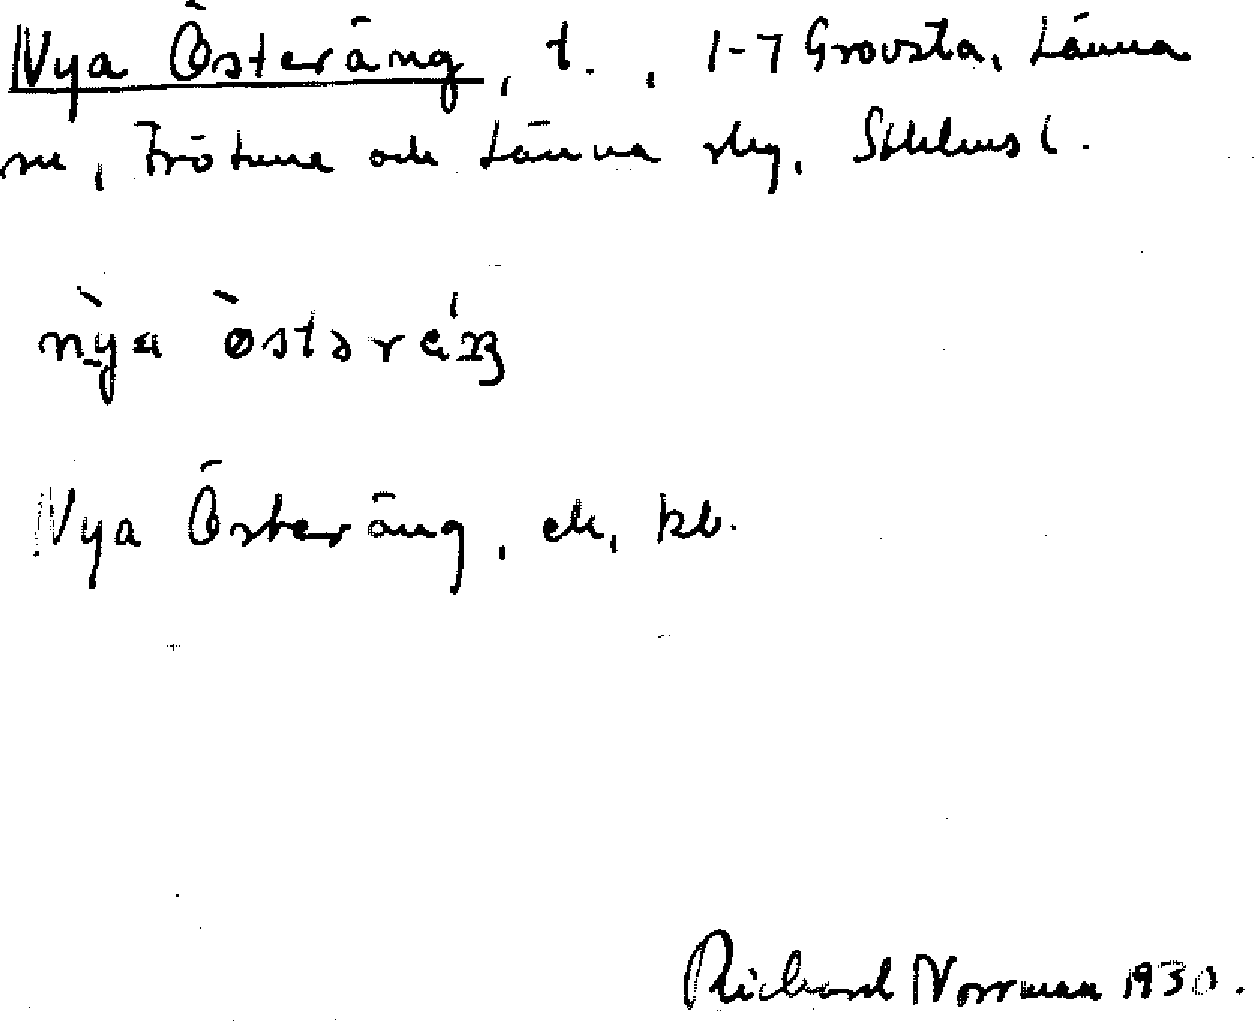 Nya Österäng, t., 1-7 Grovsta, Länna
sn, Frötuna och Länna skg, Sthlms l.
nỳa òstəráŋ
Nya Österäng, ek, kb.
Richard Norrman 1930.